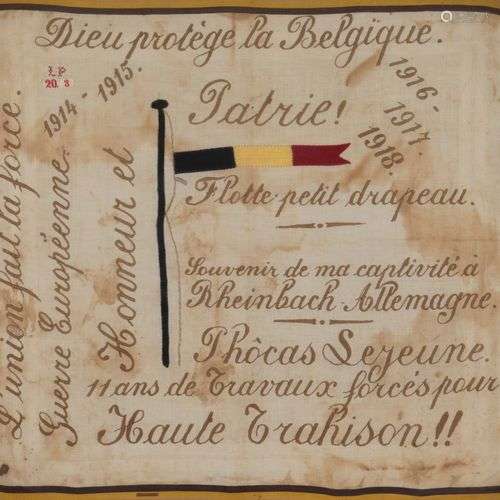 Dieu protège la Belgique.
L'union fait la force.
Guerre Européenne. 1914 - 1915.
1916-
1917-
1918.
Honneur et
Patrie!
L.P
20. 8
Flotte petit drapeau.
Souvenir de ma captivité à
Rheinbach-Allemagne.
Phôcas Lejeune.
11 ans de Travaux forcés pour
Haute Trahison!!